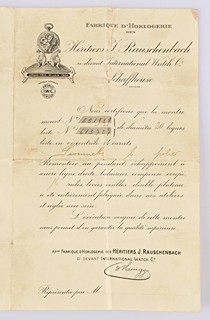 FABRIQUE D'HORLOGERIE
DES
Héritiers J. Rauschenbach
ci-devant International Watch Co
Schaffhouse
SUISSE
Nous certifions que la montre
numérot No
boîte No de diamètre 20 lignes
boîte en 18 carats
Remontoir au pendant, échappement à
ancre ligne droite, balancier compensé coupé,
rubis visible, double plateau,
a été entièrement fabriquée dans nos ateliers
et réglée avec soin.
L'exécution soignée de cette montre
nous permet d'en garantir la qualité supérieure.
PPon FABRIQUE D'HORLOGERIE DES HÉRITIERS J. RAUSCHENBACH
CI-DEVANT INTERNATIONAL WATCH Co
Représentée par M